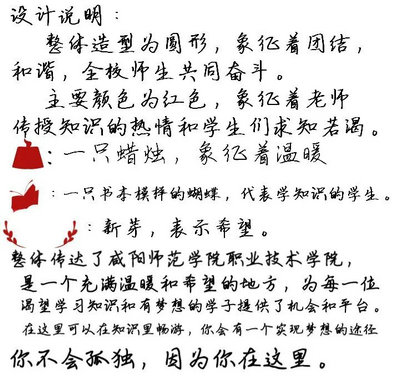 设计说明：
整体造型为圆形，象征着团结，
和谐，全校师生共同奋斗。
主要颜色为红色，象征着老师
传授知识的热情和学生们求知若渴。
：一只蜡烛，象征着温暖
：一只书本模样的蝴蝶，代表学知识的学生。
：新芽，表示希望。
整体传达了咸阳师范学院职业技术学院，
是一个充满温暖和希望的地方，为每一位
渴望学习知识和有梦想的学子提供了机会和平台。
在这里可以在知识里畅游，你会有一个实现梦想的途径
你不会孤独，因为你在这里。